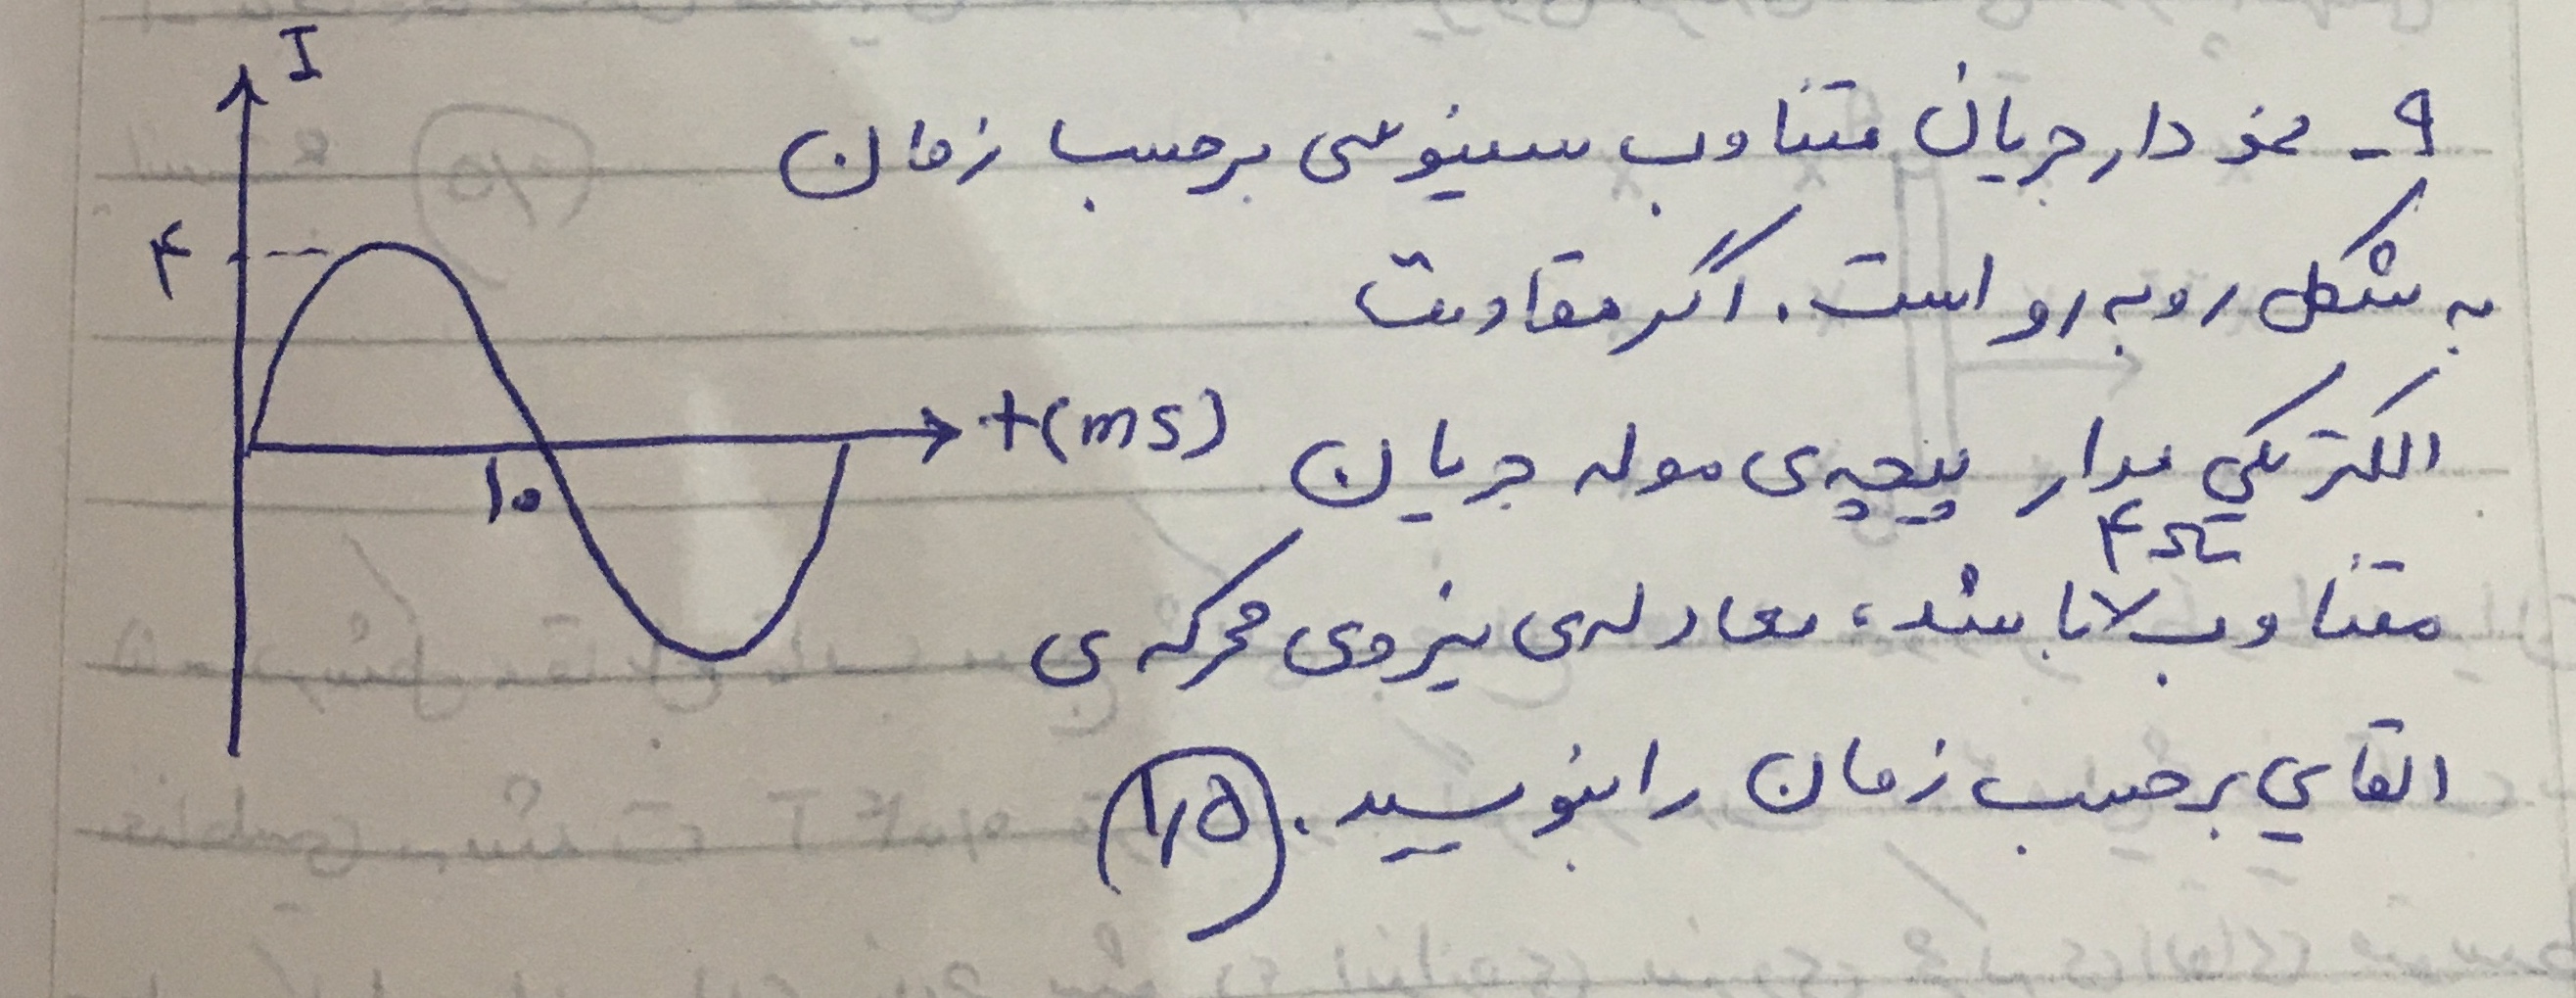 ۹- نمودار جریان متناوب سینوسی برحسب زمان
به شکل روبه رو است. اگر مقاومت
الکتریکی مدار پیچه‌ی مولد جریان
متناوب ۴Ω باشد، معادله‌ی نیروی محرکه‌ی
القایی برحسب زمان را بنویسید. ۱٫۵
I
۴
t(ms)
۱۰